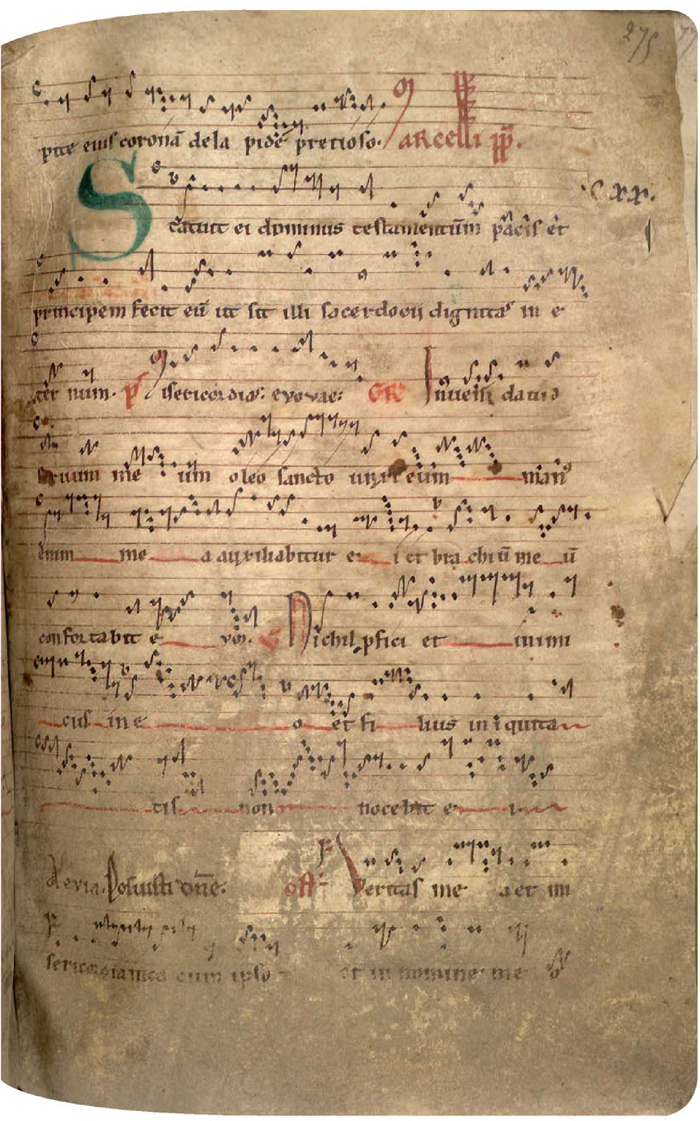 275
pite eius coronā dela pide pretioso. ARCelli pp̄.
C xx.
Statuit ei dominus testamentūm pacis et
principem fecit eū ut sit illi sacerdocij dignitas in e
ter num. ps isericordias. evovae. GR Inueni dauid
seruum me um oleo sancto unxi eum man'
enim me a auxiliabitur e i et bra chiū me ū
confortabit e um. Nichil pfici et inimi
cus in e o et fi lius iniquita
tis non nocebit e i
Aevia. Posuisti dn̄e. off Veritas me a et mi
sericordia mea cum ipso et in nomine me o